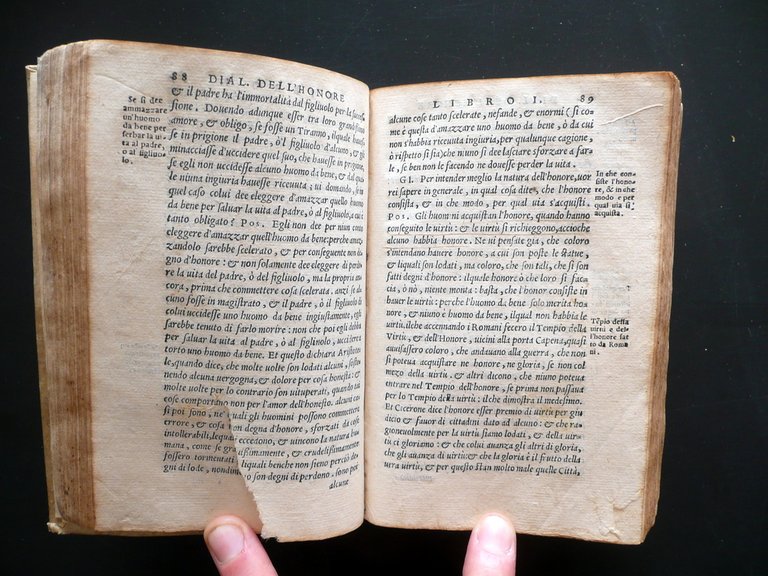 88 DIAL. DELL'HONORE
& il padre ha l'immortalità dal figliuolo per la succes-
sione. Douendo adunque esser tra loro grandissimo
amore, & obligo, se fosse un Tiranno, ilquale hauesse
se in prigione il padre, ò il figliuolo d'alcuno, & gli
minacciasse d'uccider quel suo, che hauesse in prigione,
se egli non uccidesse alcuno huomo da bene, & dal qua
le niuna ingiuria hauesse riceuuta; ui domando, se in
quel caso colui dee eleggere d'amazzar quello huomo
da bene per saluar la uita al padre, ò al figliuolo, a cui è
tanto obligato? POS. Egli non dee per niun conto
eleggere d'amazzar quell'huomo da bene: perche amaz-
zandolo sarebbe scelerato, & per conseguente non de-
gno d'honore: & non solamente dee eleggere di perde-
re la uita del padre, ò del figliuolo, ma la propria an-
cora, prima che commettere cosa scelerata. anzi se al-
cuno fosse in magistrato, & il padre, ò il figliuolo di
colui uccidesse uno huomo da bene ingiustamente, egli
sarebbe tenuto di farlo morire: non che poi egli debba
per saluar la uita al padre, ò al figliuolo, uccidere
uno huomo da bene. Et questo dichiara Aristotele
le, quando dice, che molte uolte son lodati alcuni, soste-
nendo alcuna uergogna, & dolore per cosa honesta: &
molte uolte per lo contrario son uituperati, quando tai
cose comportano non per l'amor dell'honesto. alcune cose
si poi sono, ne' quali gli huomini possono commettere
errore, & cosa non degna d'honore, sforzati da cose
intollerabili, lequali eccedono, & uincono la natura hu-
mana, come se grauissimamente, & crudelissimamente
fossero tormentati liquali benche non sieno perciò de-
gni di lode, nondimeno son degni di perdono. sono poi
alcune
Se si dee
ammazzare
un'huomo
da bene per
serbar la ui-
ta al padre,
o al figliuo
lo.
LIBRO I. 89
alcune cose tanto scelerate, nefande, & enormi (si co-
me è questa d'amazzare uno huomo da bene, ò da cui
non s'habbia riceuuta ingiuria, per qualunque cagione,
ò rispetto si sia) che niuno si dee lasciare sforzare a far-
le, se ben non le facendo ne douesse perder la uita.
GI. Per intender meglio la natura dell'honore, uor
rei sapere in generale, in qual cosa dite, che l'honore
consista, & in che modo, per qual uia s'acquisti.
POS. Gli huomini acquistan l'honore, quando hanno
conseguito le uirtù: & le uirtù si richieggono, accioche
alcuno habbia honore. Ne ui pensate già, che coloro
s'intendano hauere honore, a cui son poste le statue,
& liquali son lodati, ma coloro, che son tali, che si son
fatti degni d'honore: ilquale honore ò che loro si fac-
cia, ò nò, niente monta: basta, che l'honor consiste in
hauer le uirtù: perche l'huomo da bene solo merita ho
nore, & niuno è huomo da bene, ilqual non habbia le
uirtù. ilche accennando i Romani fecero il Tempio della
Virtù, & dell'Honore, uicini alla porta Capena, quasi
auuisassero coloro, che andauano alla guerra, che non
si poteua acquistare ne honore, ne gloria, se non col
mezo della uirtù. & altri dicono, che niuno poteua
entrare nel Tempio dell'honore, se prima non passaua
per lo Tempio della uirtù: ilche dimostra il medesimo.
Et Cicerone dice l'honore esser premio di uirtù per giu
dicio & fauor di cittadini dato ad alcuno: & che ra-
gioneuolmente per la uirtù siamo lodati, & della uir-
tù ci gloriamo: & che colui auanza gli altri di gloria,
che gli auanza di uirtù: & che la gloria è il frutto della
uera uirtù, & per questo stan molto male quelle Città,
In che con
siste l'hono-
re, & in che
modo e per
qual uia si
acquista.
Tẽpio della
uirtù e del-
l'honore fat
to da Roma
ni.